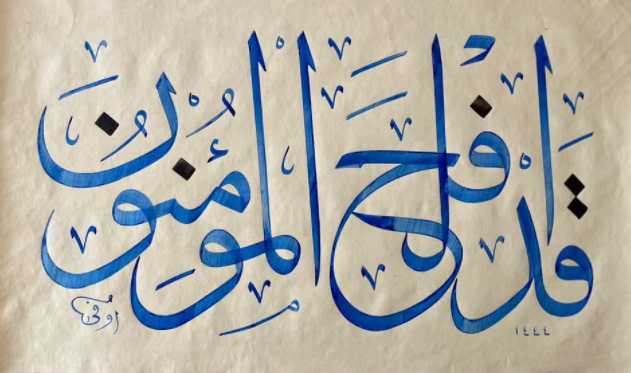 قَدْ أَفْلَحَ الْمُؤْمِنُونَ
١٤٤٤